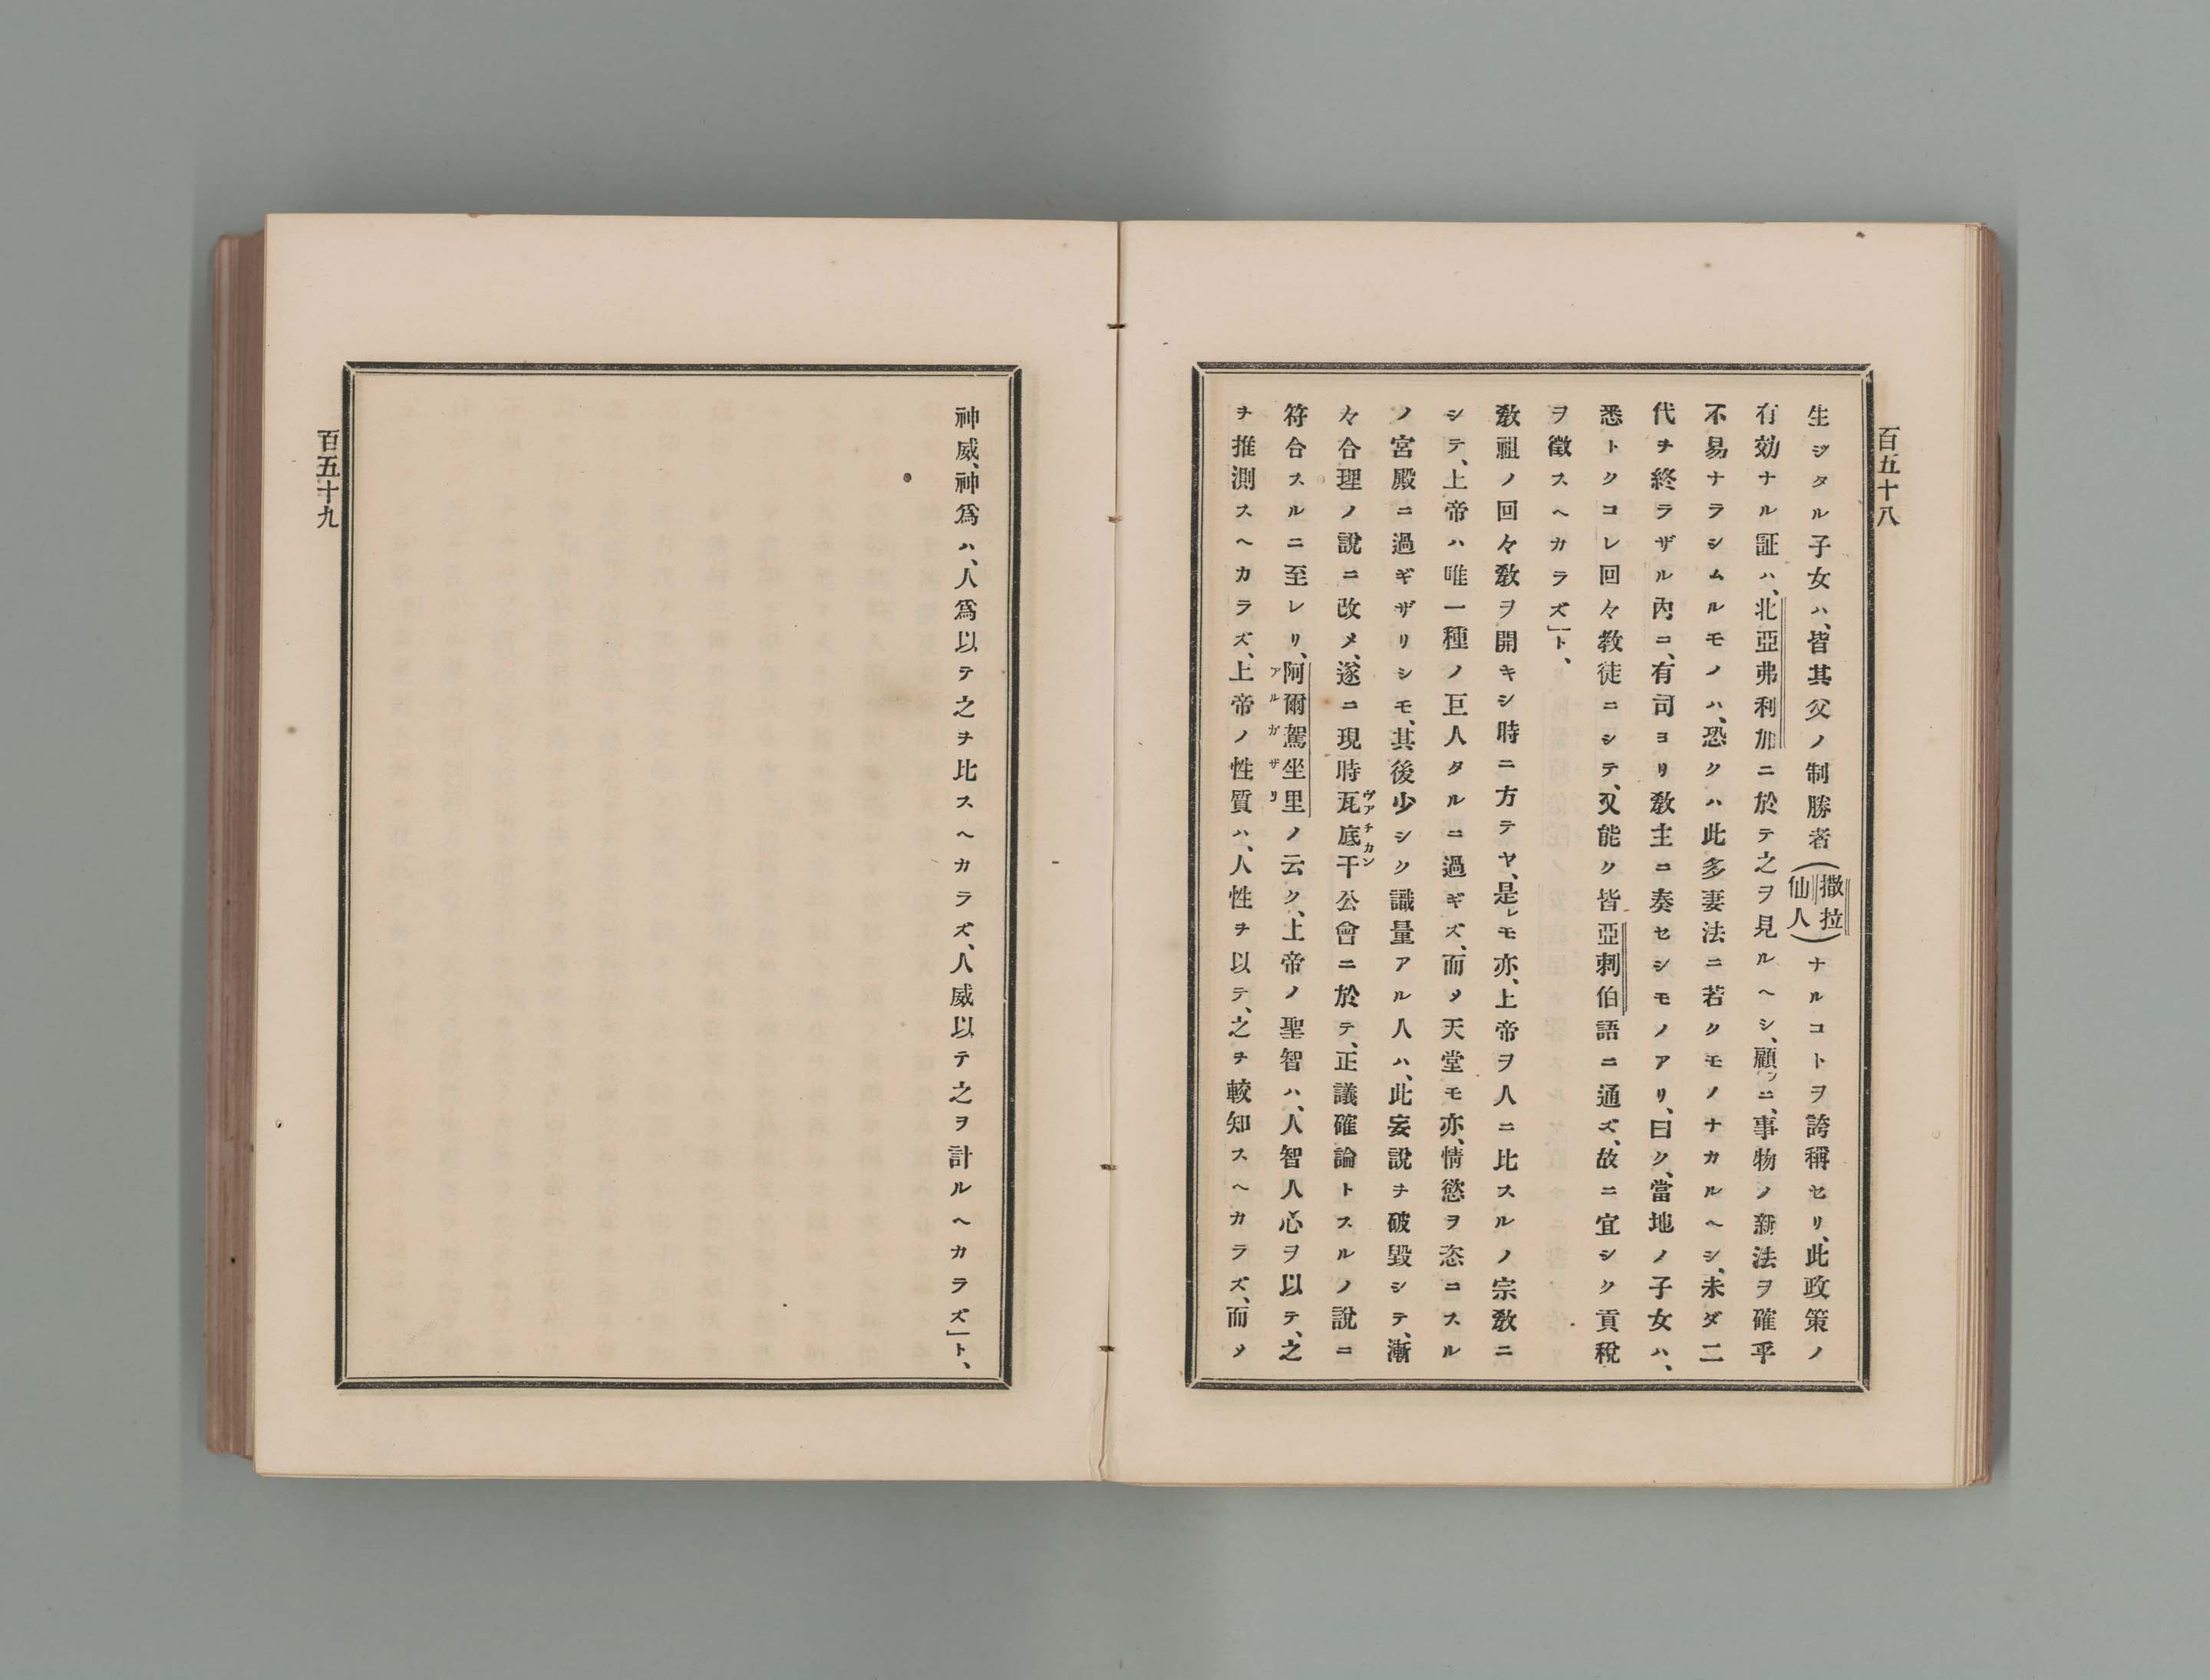 百五十八
生ジタル子女ハ、皆其父ノ制勝者(撒拉仙人)ナルコトヲ誇稱セリ、此政策ノ
有効ナル証ハ、北亞弗利加ニ於テ之ヲ見ルヘシ、顧フニ、事物ノ新法ヲ確乎
不易ナラシムルモノハ、恐クハ此多妻法ニ若クモノナカルヘシ、未ダ二
代ヲ終ラザル內ニ、有司ヨリ敎主ニ奏セシモノアリ、曰ク、當地ノ子女ハ、
悉トクコレ回々教徒ニシテ、又能ク皆亞剌伯語ニ通ズ、故ニ宜シク貢稅
ヲ徵スヘカラズ」ト、
敎祖ノ回々敎ヲ開キシ時ニ方テヤ、是レモ亦、上帝ヲ人ニ比スルノ宗敎ニ
シテ、上帝ハ唯一種ノ巨人タルニ過ギズ、而メ天堂モ亦、情慾ヲ恣ニスル
ノ宮殿ニ過ギザリシモ、其後少シク識量アル人ハ、此妄說ヲ破毀シテ、漸
々合理ノ說ニ改メ、遂ニ現時瓦底干公會ニ於テ、正議確論トスルノ說ニ
ヴァチカン
符合スルニ至レリ、阿爾駕坐里ノ云ク、上帝ノ聖智ハ、人智人心ヲ以テ、之
アルガザリ
ヲ推測スヘカラズ、上帝ノ性質ハ、人性ヲ以テ、之ヲ較知スヘカラズ、而メ
神威、神爲ハ、人爲以テ之ヲ比スヘカラズ、人威以テ之ヲ計ルヘカラズ」ト、
百五十九